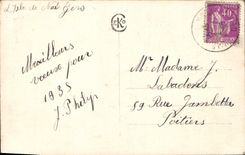 L'Isle de Noé Gers
Meilleurs
voeux pour
1935
J. Phelip
Mr. Madame J.
Labadens
59 Rue Jambette
Poitiers
40